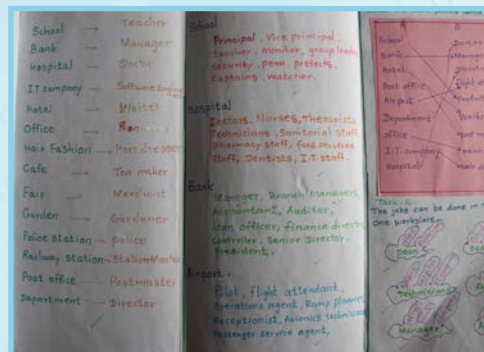 School → Teacher
Bank → Manager
Hospital → Doctor
IT company → Software
Hotel → Waiter
Office →
Hair Fashion → Hair dresser
Cafe → Tea maker
Fair → Merchant
Garden → Gardener
Police station → police
Railway station → StationMaster
Post office → Postmaster
Department → Director
School
Principal, Vice principal,
teacher, monitor, group leader,
security, peon, prefects,
captains, watcher.
Hospital
Nurses, Therapists
Technicians, Sanitorial staff
Pharmacy staff, food services
staff, Dentists, I.T. staff.
Bank
Manager, Branch managers,
Accountant, Auditor,
loan officer, finance director
controller, Senior Director,
President.
Airport.
Pilot, flight attendant,
operations agent, Ramp planner
Receptionist, Avionics technicians
Passenger service agent,
School
Bank
Hotel
Post office
Airport
Department
office
I.T. company
Hospital
Task-2
The jobs can be done in
one workplace.
Peon
Technicians
Manager